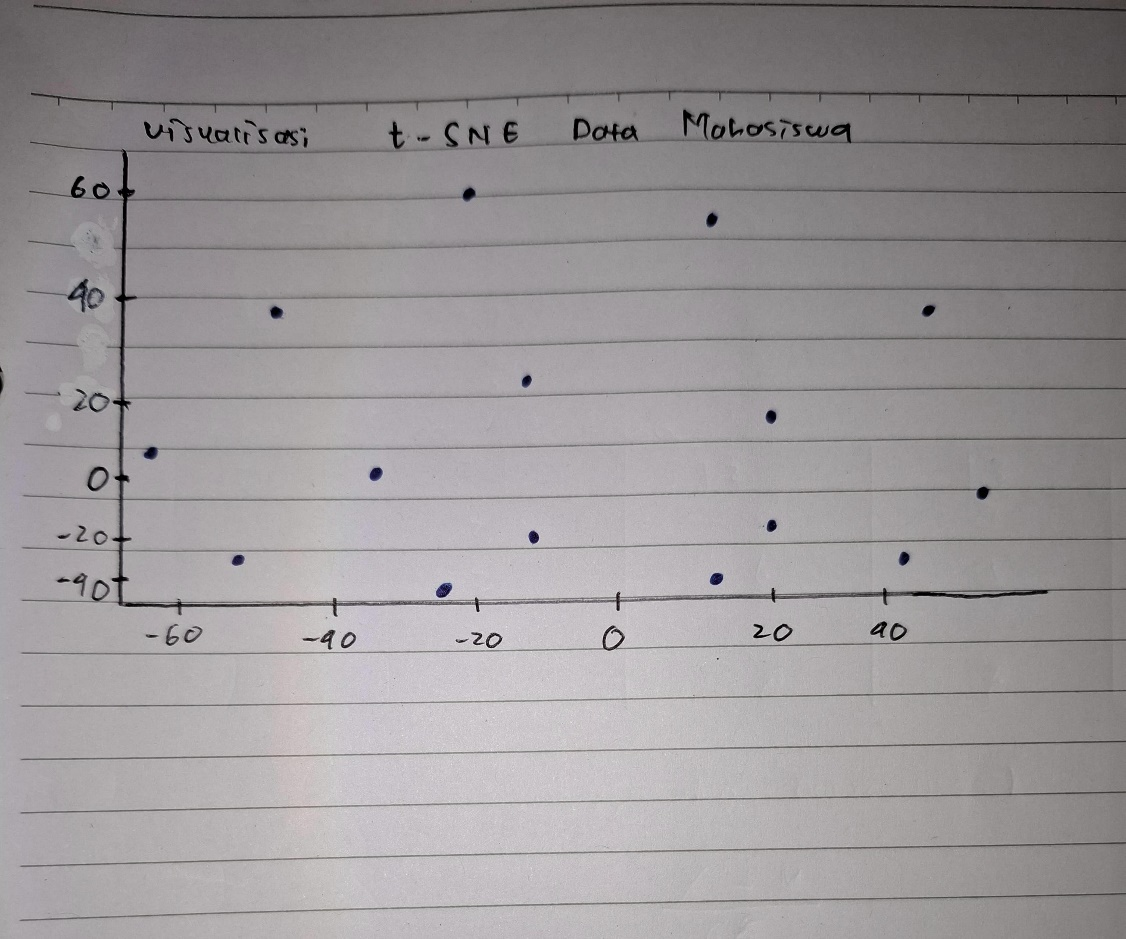 Visualisasi t-SNE Data Mahasiswa
60
40
20
0
-20
-40
-60 -40 -20 0 20 40